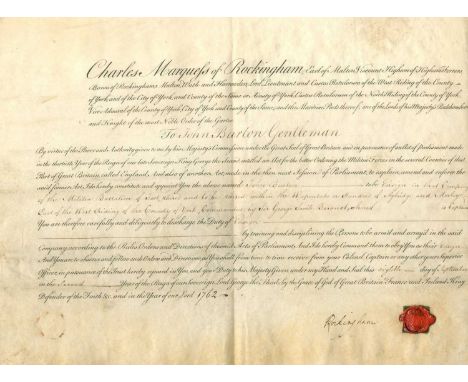 Charles Marquess of Rockingham, Earl of Malton Viscount Higham of Higham Ferrers
Baron of Rockingham Malton Wath and Harrowden Lord Lieutenant and Custos Rotulorum of the West Riding of the County
of York and of the City of York and County of the same or Ainsty of York Custos Rotulorum of the North Riding of the County of York
Vice Admiral of the County of York City of York and County of the Same, and the Maritime Parts thereof; one of the Lords of his Majesty's Bedchamber
and Knight of the most Noble Order of the Garter
To John Barlow Gentleman
By virtue of the Power and Authority given to me by his Majesty's Commission under the Great Seal of Great Britain and in pursuance of an Act of Parliament made
in the thirtieth Year of the Reign of our late Sovereign King George the second intitled an Act for the better Ordering the Militia Forces in the several Counties of that
Part of Great Britain called England, And also of another Act, made in the then next Session of Parliament, to explain, amend and enforce the
said former Act, I do hereby constitute and appoint You the above named John Barlow to be Ensign in that Company
of the Militia Battalion of Foot, to be raised within the Wapentakes
of the West Riding of the County of York Commanded by Sir George Baronet
You are therefore carefully and diligently to discharge the Duty of Ensign by training and disciplining the Persons to be arm'd and arrayed in the said
Company according to the Rules Orders and Directions of the said Acts of Parliament. And I do hereby Command them to obey You as their Ensign
And You are to observe and follow such Orders and Directions as You shall from time to time receive from your Colonel Captain or any other your Superior
Officer, in pursuance of the Trust hereby reposed in You and your Duty to his Majesty Given under my Hand and Seal this eighth day of
in the Second Year of the Reign of our Sovereign Lord George the third, by the Grace of God of Great Britain France and Ireland King
Defender of the Faith &c. and in the Year of our Lord 1762
Rockingham